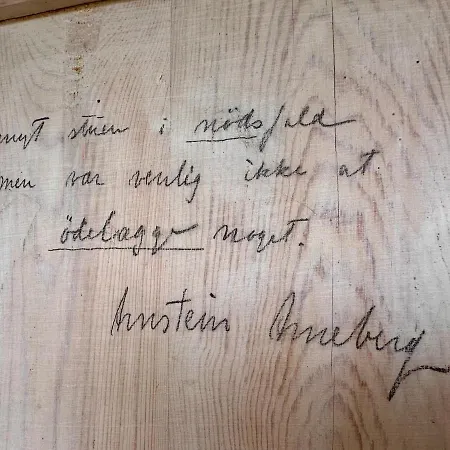 nyt stuen i nödsfald
men vær venlig ikke at
ödelægge noget.
Arnstein Arneberg